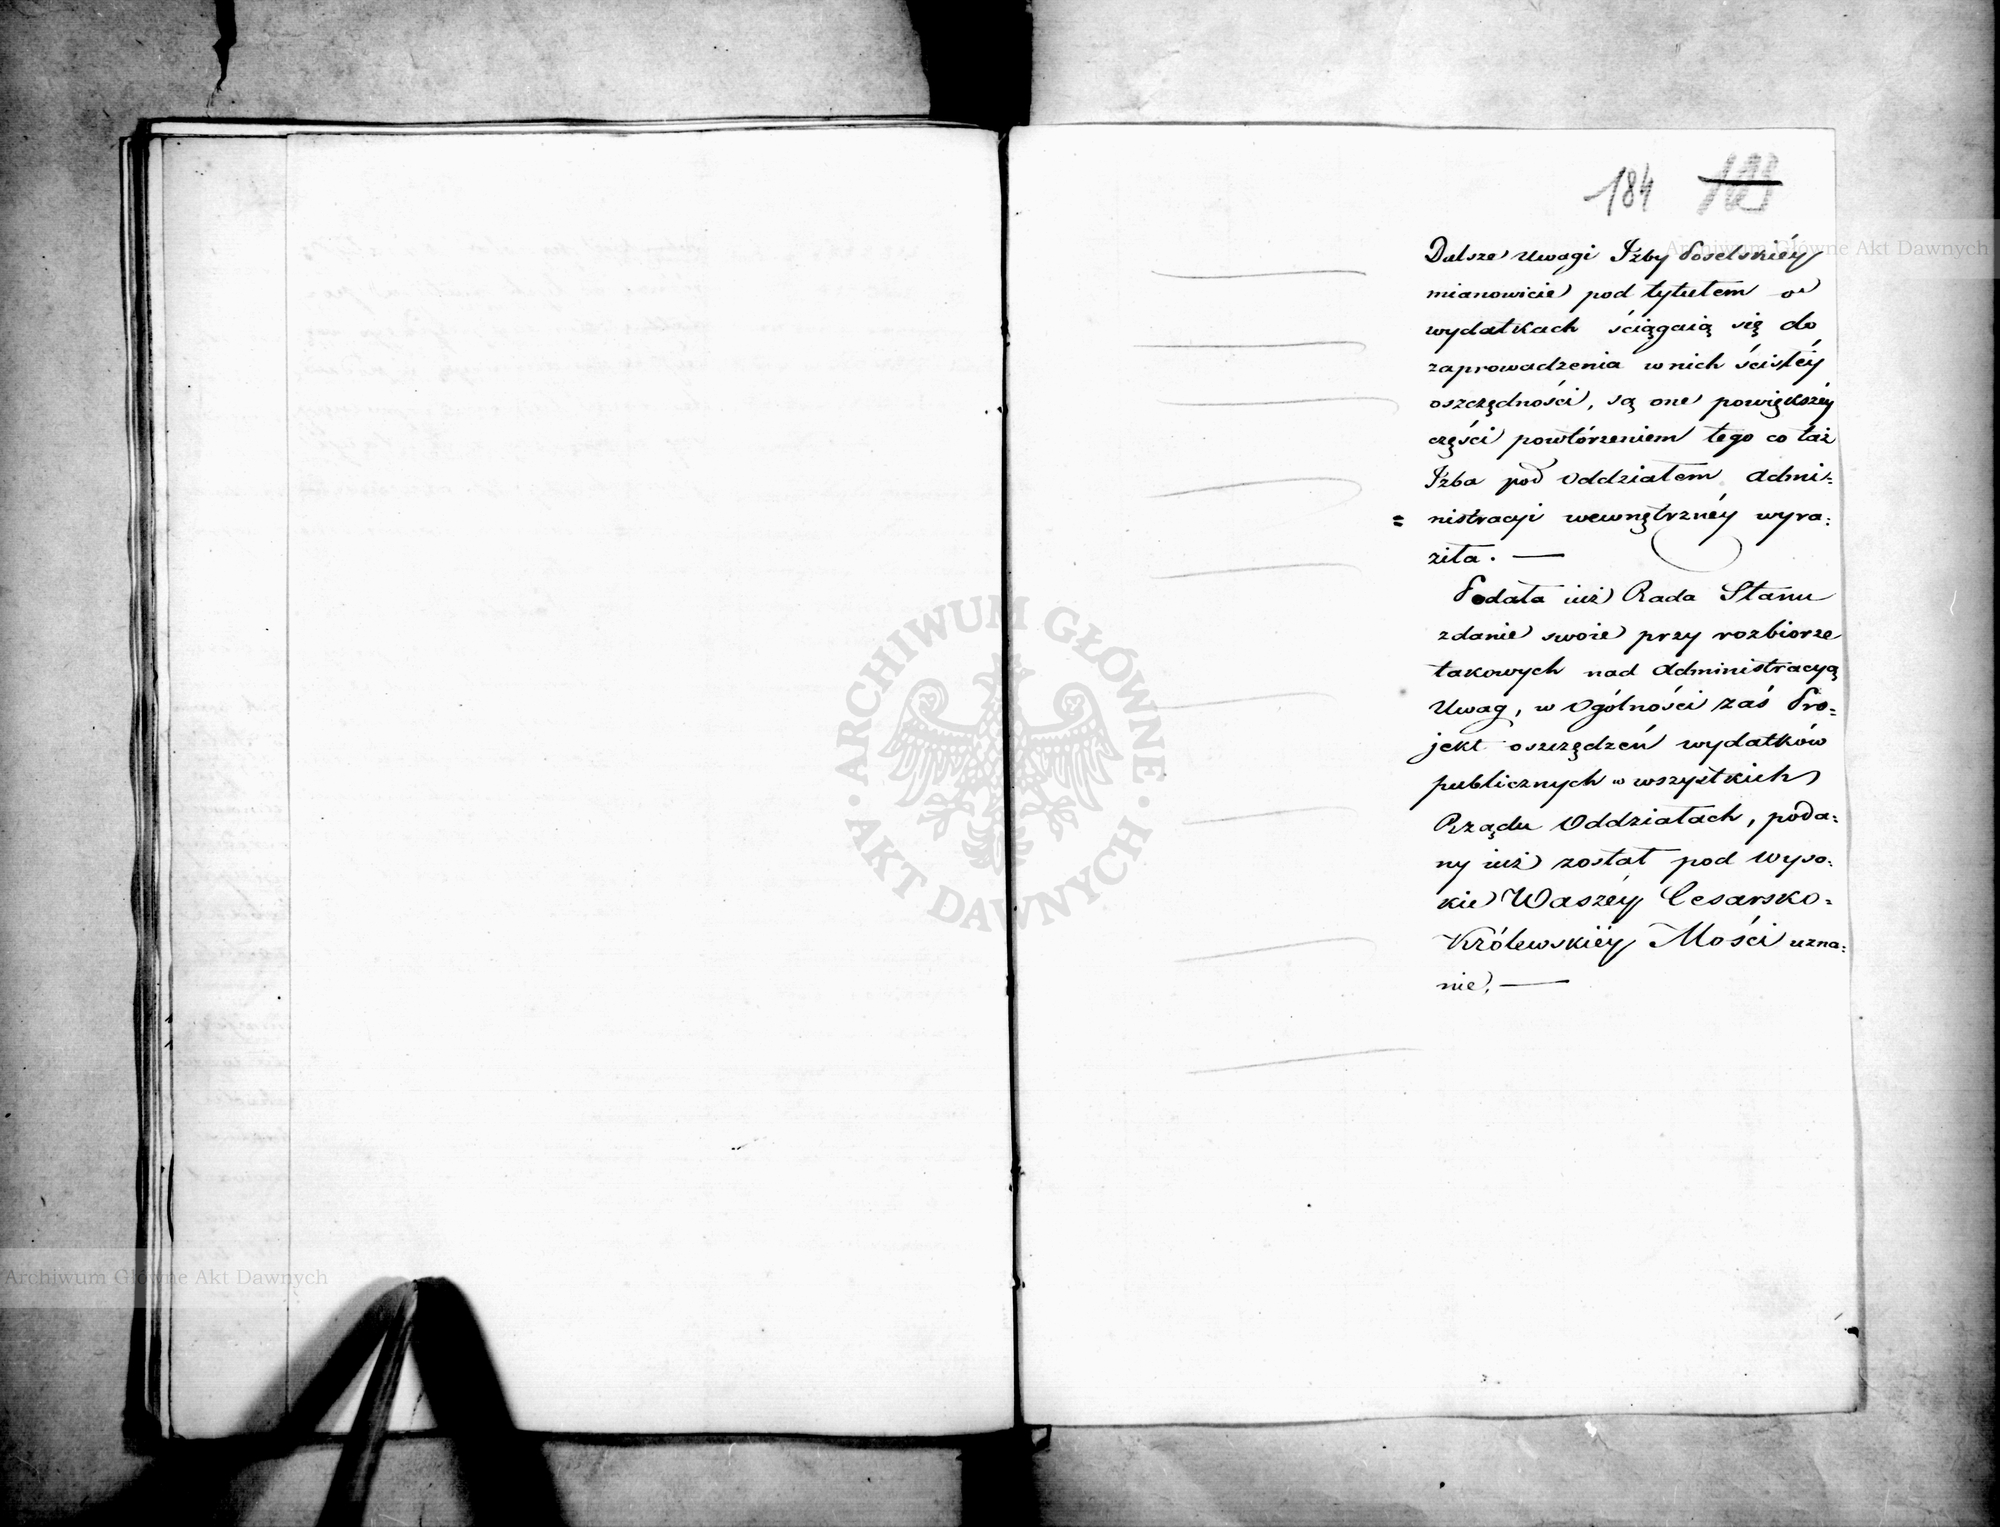 184
Dalsze Uwagi Jzby Poselskiéy
mianowicie pod tytułem o
wydatkach ściągaią się do
zaprowadzenia w nich ścisłéy
oszczędności, są one powiększéy
części powtórzeniem tego co taż
Jzba pod Oddziałem Admi=
nistracyi wewnętrznéy wyra=
ziła. —
Podała iuż Rada Stanu
zdanie swoie przy rozbiorze
takowych nad Administracyą
Uwag, w Ogólności zaś Pro=
jekt oszczędzeń wydatków
publicznych w wszystkich
Rządu Oddziałach, poda=
ny iuż został pod Wyso=
kie Waszéy Cesarsko=
Królewskiéy Mości uzna=
nie. —
ARCHIWUM GŁÓWNE
AKT DAWNYCH
Archiwum Główne Akt Dawnych
Archiwum Główne Akt Dawnych